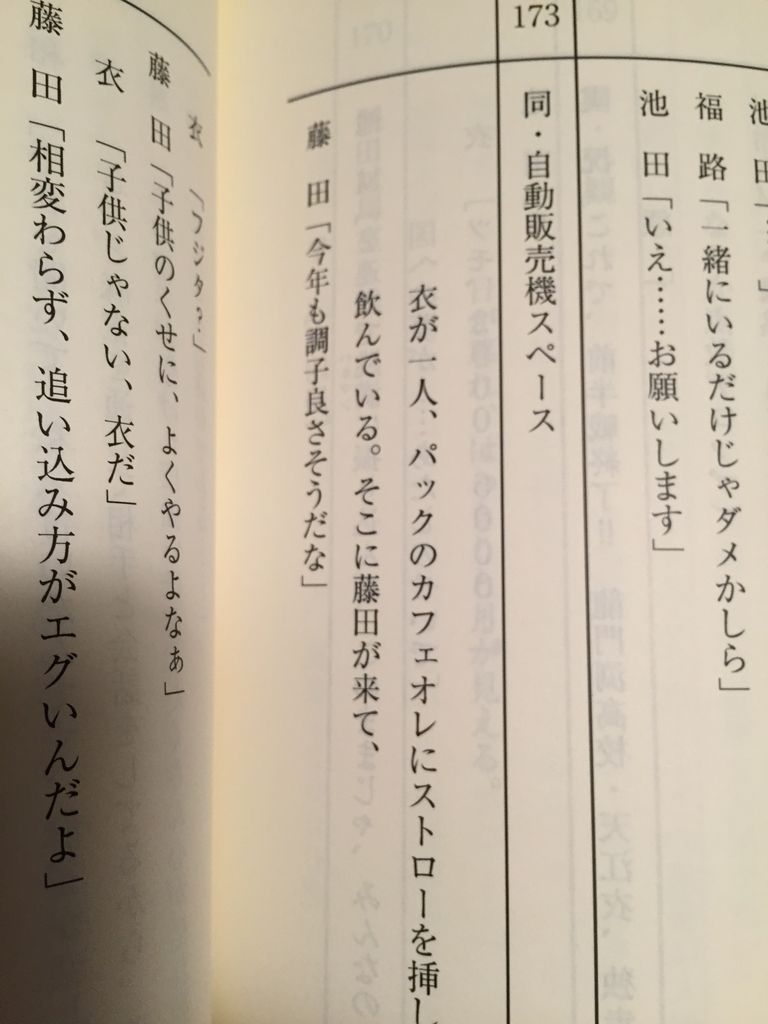 福路「一緒にいるだけじゃダメかしら」
池田「いえ……お願いします」
173
同・自動販売機スペース
衣が一人、パックのカフェオレにストローを挿し
飲んでいる。そこに藤田が来て、
藤田「今年も調子良さそうだな」
衣「フジタ?」
藤田「子供のくせに、よくやるよなぁ」
衣「子供じゃない、衣だ」
藤田「相変わらず、追い込み方がエグいんだよ」